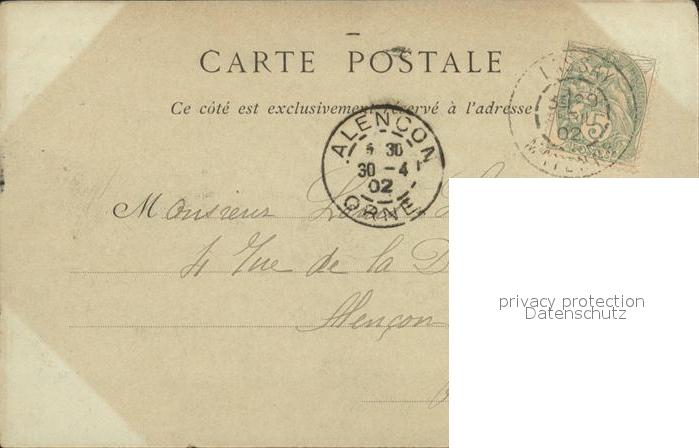 CARTE POSTALE
Ce côté est exclusivement réservé à l'adresse
ALENÇON
30
30 -4
02
ORNE
02
5
Monsieur
4 Rue de la
Alençon
privacy protection
Datenschutz